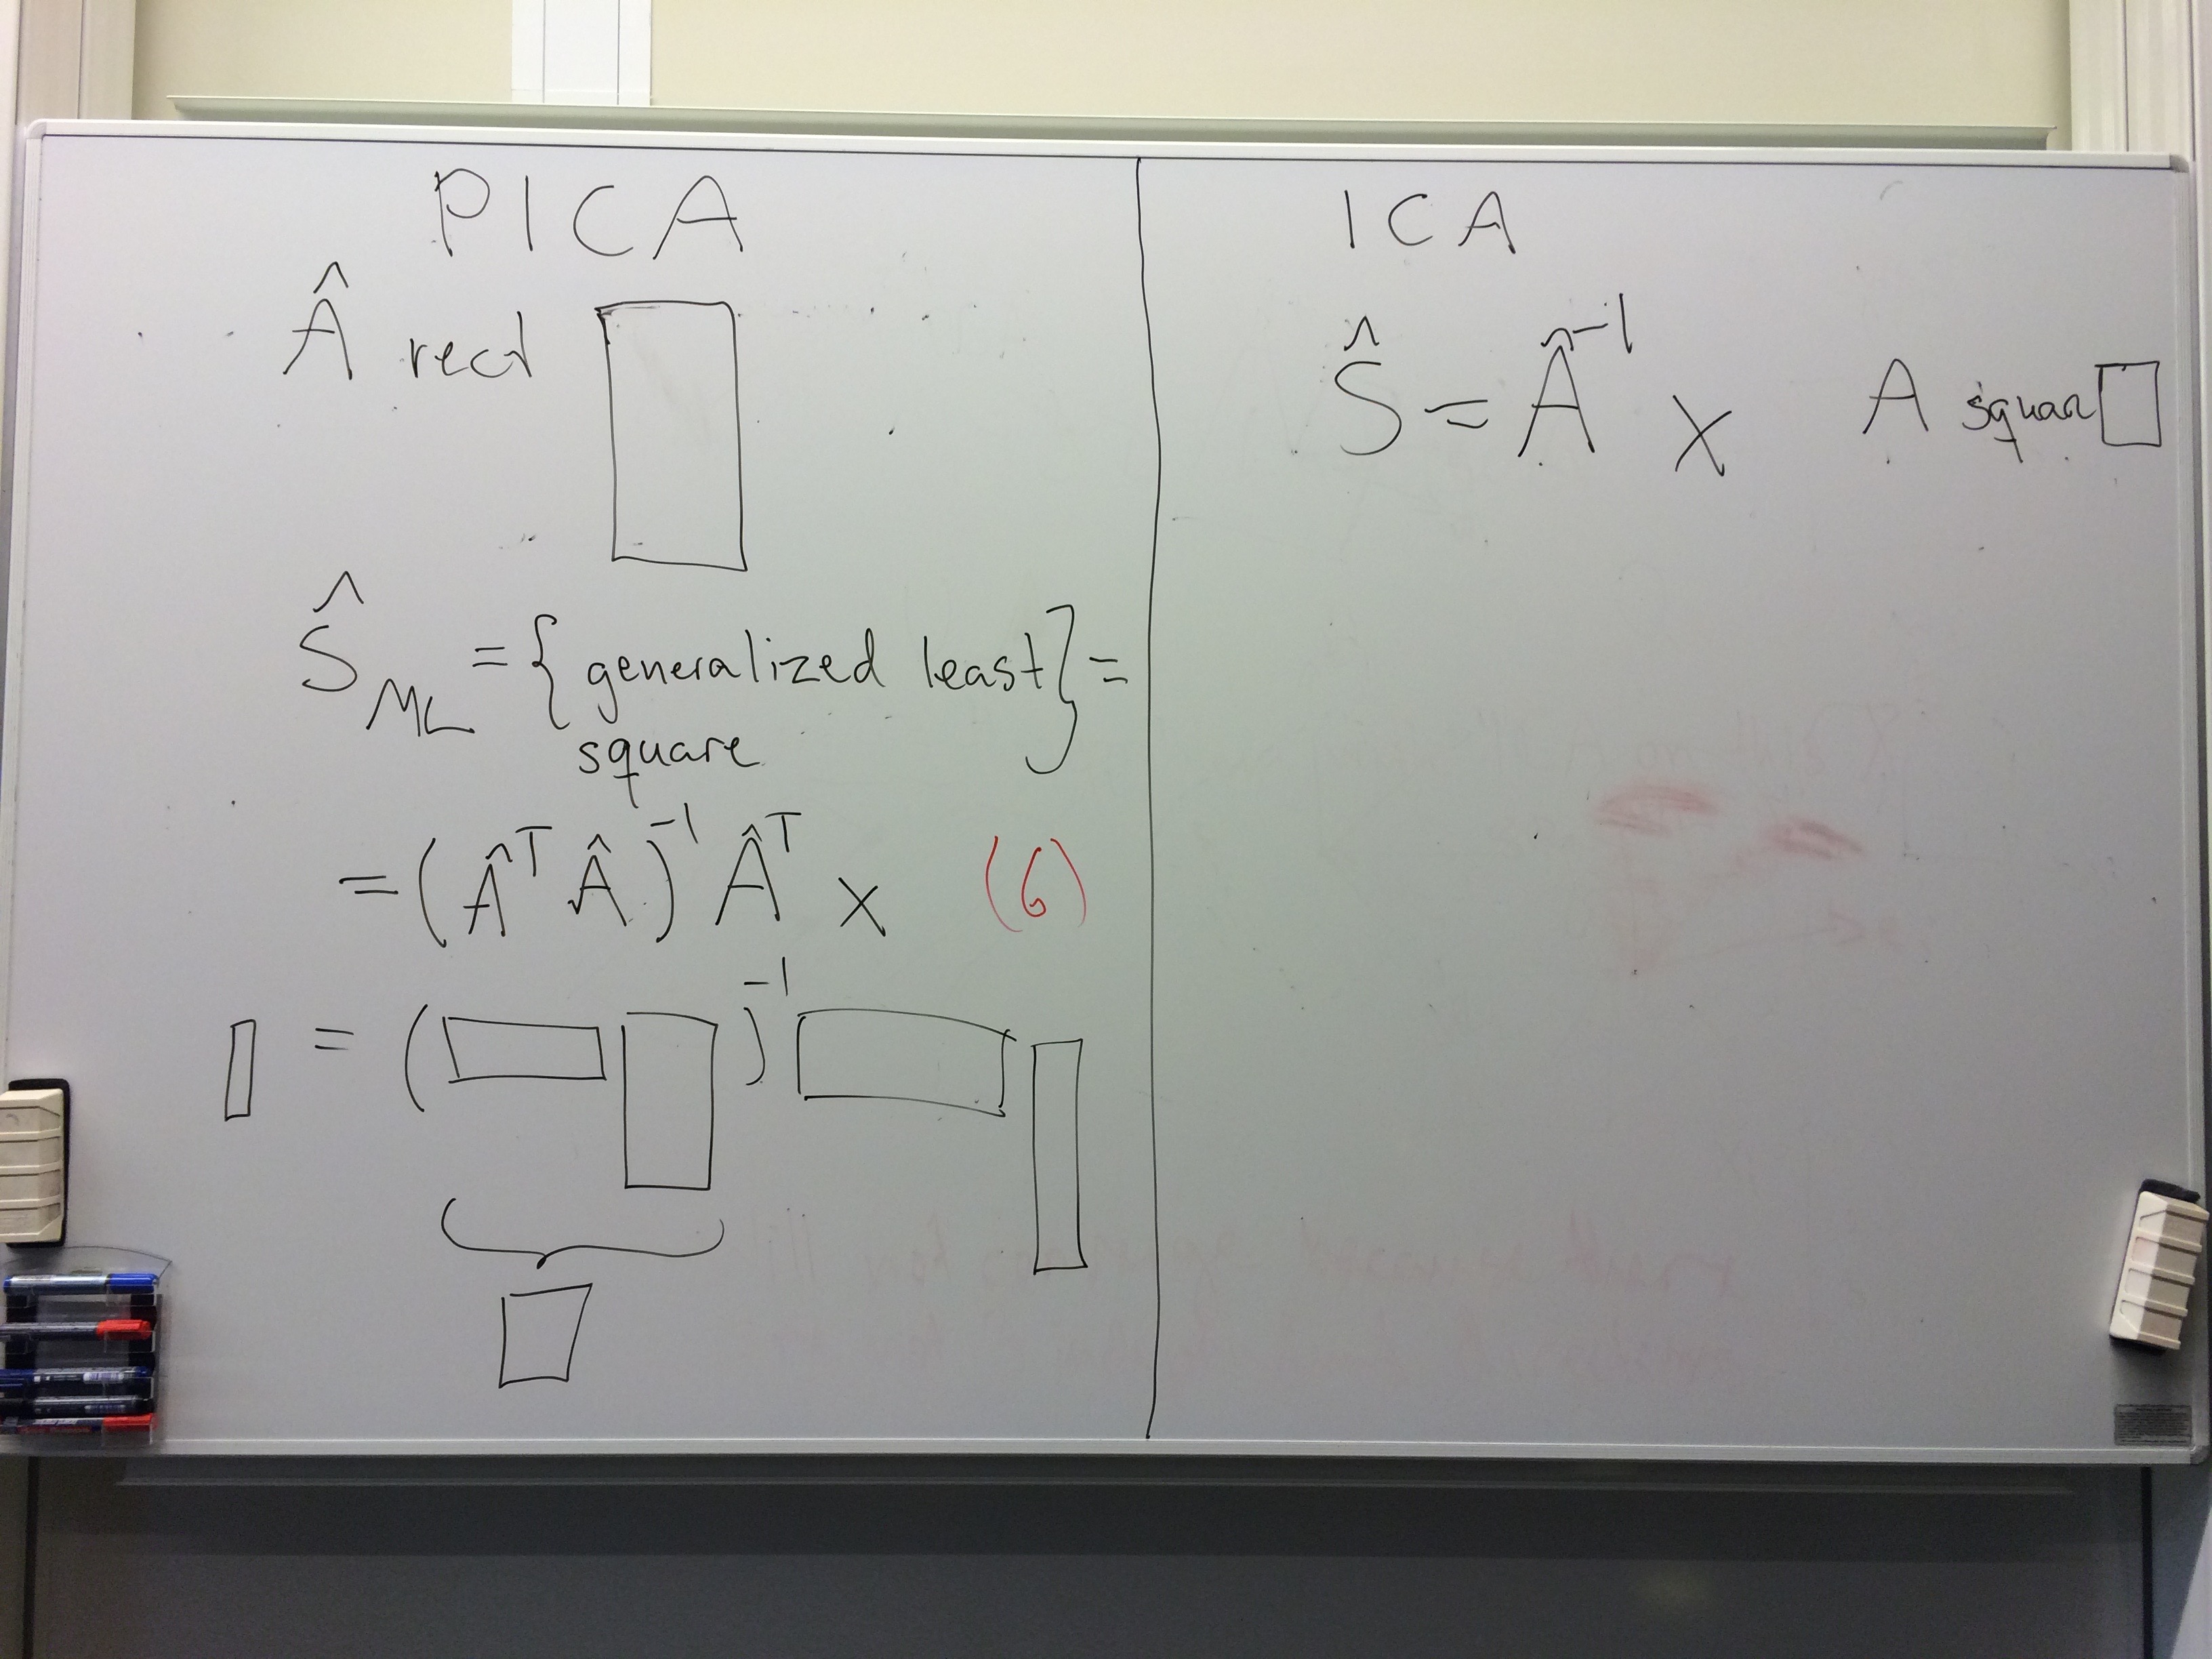 PICA
Â rect
Ŝ_ML = { generalized least } =
square
= (Â^T Â)^-1 Â^T x (6)
= ( )^-1
ICA
Ŝ = Â^-1 x A square